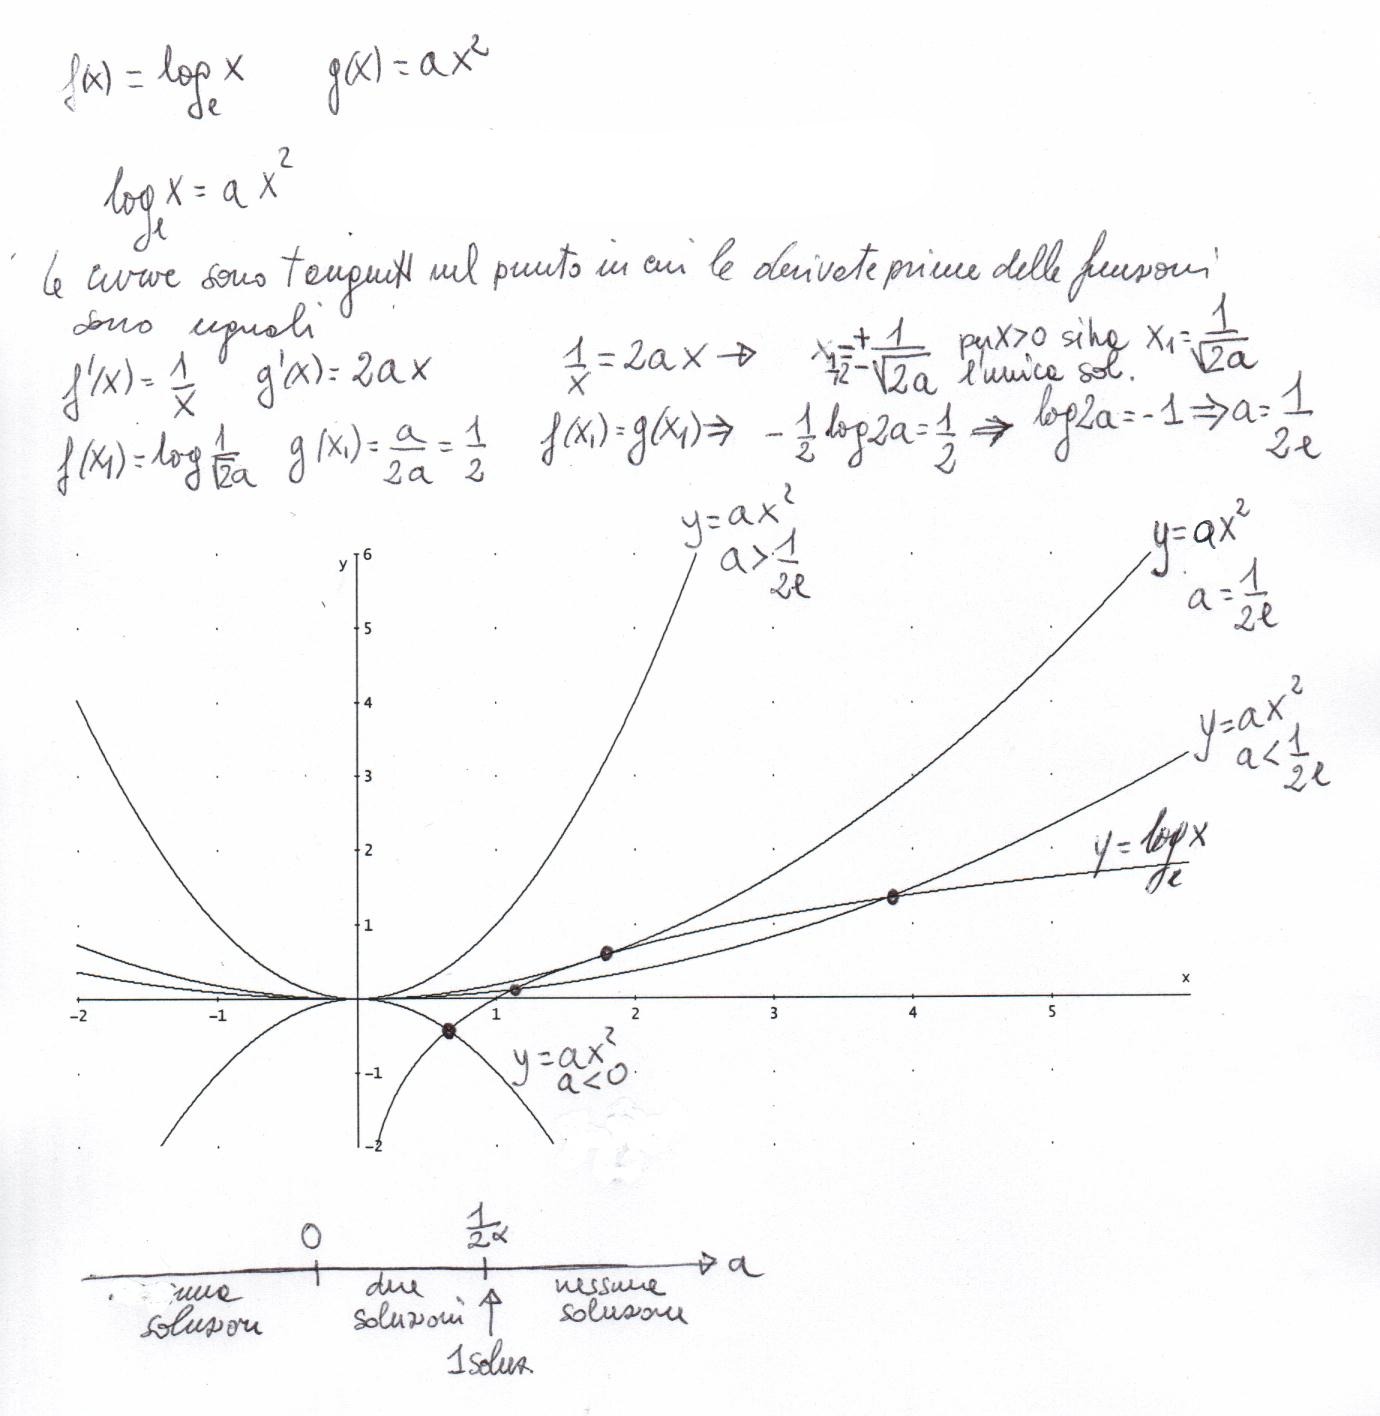 f(x) = logₑ x   g(x) = ax²
logₑ x = a x²
Le curve sono tangenti nel punto in cui le derivate prime delle funzioni
sono uguali
f'(x) = 1/x   g'(x) = 2ax   1/x = 2ax → x₁,₂ = ± 1/√2a   per x>0 si ha x₁ = 1/√2a
l'unica sol.
f(x₁) = log 1/√2a   g(x₁) = a/2a = 1/2   f(x₁) = g(x₁) ⇒ -1/2 log 2a = 1/2 ⇒ log 2a = -1 ⇒ a = 1/2e
y = ax²
a > 1/2e
y = ax²
a = 1/2e
y = ax²
a < 1/2e
y = logₑ x
y
6
5
4
3
2
1
x
-2 -1 1 2 3 4 5
y = ax²
a < 0
-1
-2
0 1/2e a
una due nessuna
soluzione soluzioni soluzione
1 soluz.